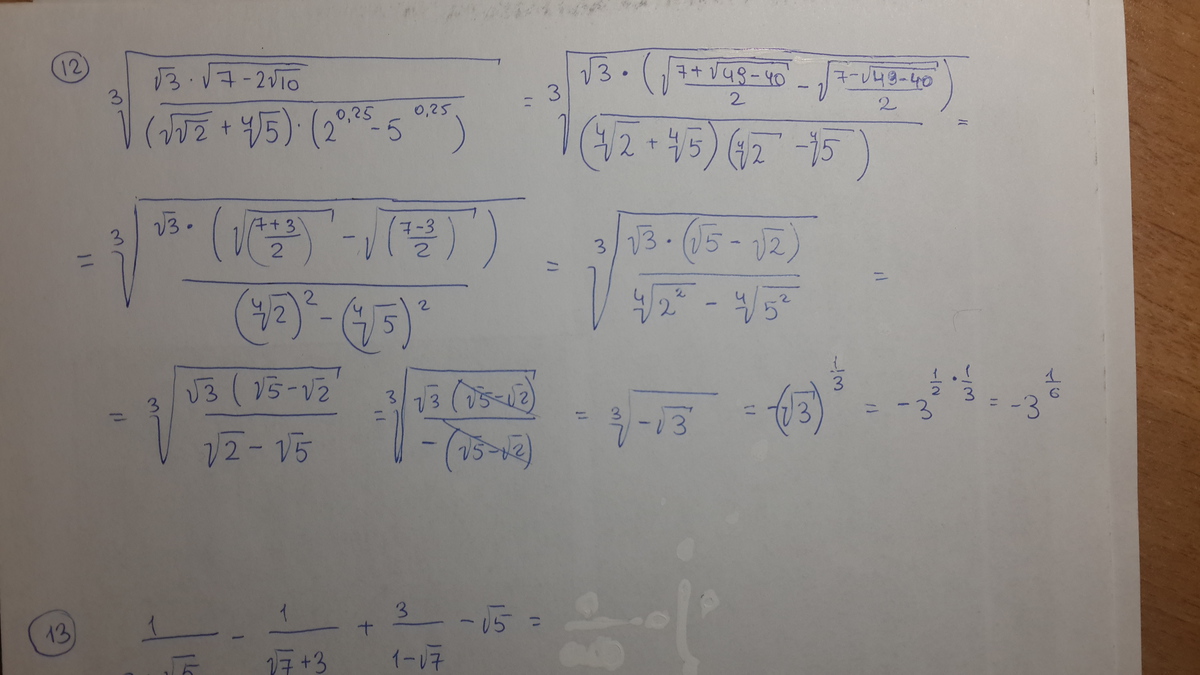 12 ∛( (√3 · √(7-2√10)) / ((√√2 + ∜5) · (2^0,25 - 5^0,25)) ) = ∛( (√3 · (√((7+√(49-40))/2) - √((7-√(49-40))/2))) / ((∜2 + ∜5)(∜2 - ∜5)) ) =
= ∛( (√3 · (√((7+3)/2) - √((7-3)/2))) / ((∜2)² - (∜5)²) ) = ∛( (√3 · (√5 - √2)) / (∜2² - ∜5²) ) =
= ∛( (√3 (√5-√2) / (√2 - √5) ) = ∛( (√3 (√5-√2)) / (-(√5-√2)) ) = ∛(-√3) = -(√3)^(1/3) = -3^(1/2 · 1/3) = -3^(1/6)
13 1/√5 - 1/(√7+3) + 3/(1-√7) - √5 =